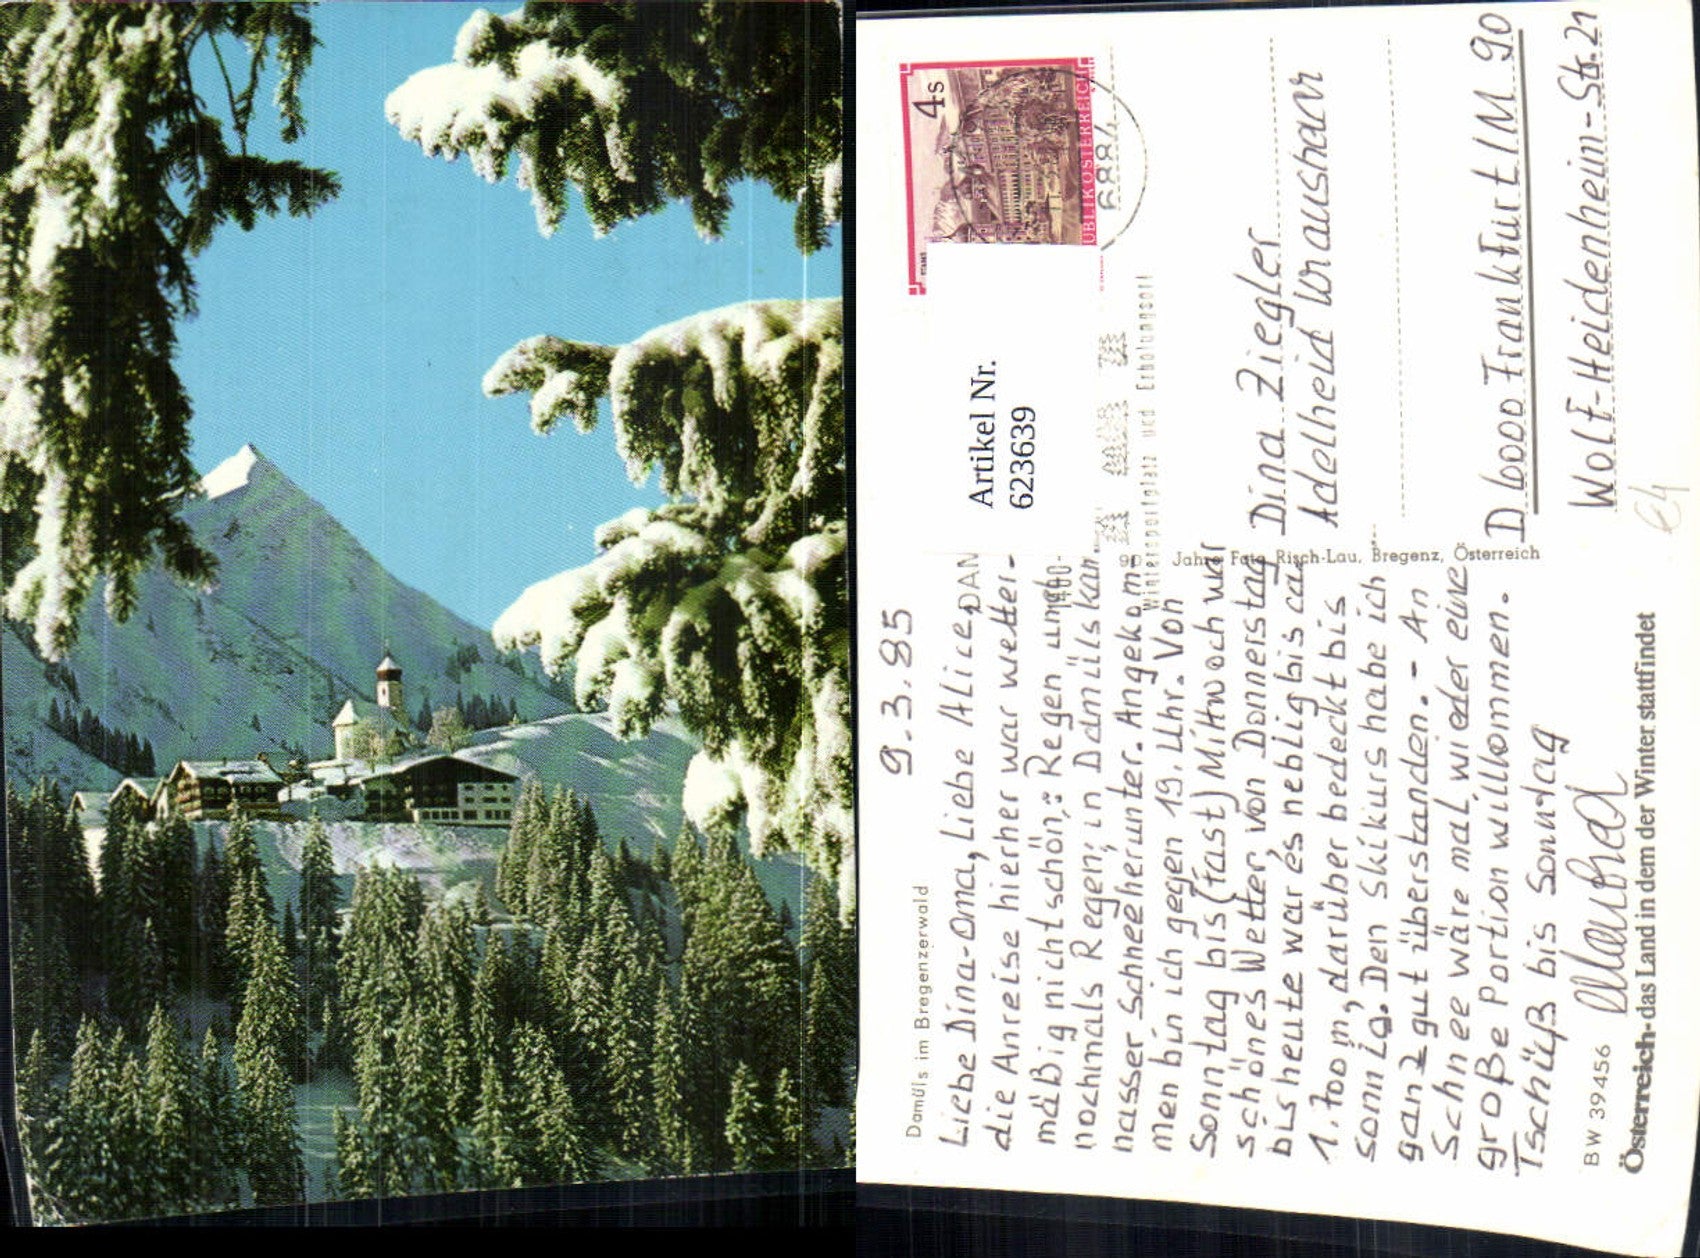 Damüls im Bregenzerwald
9.3.85
Liebe Dina-Oma, Liebe Alice,
die Anreise hierher war wetter-
mäßig nicht schön: Regen und
nochmals Regen; in Damüls kam
nasser Schnee herunter. Angekom-
men bin ich gegen 19. Uhr. Von
Sonntag bis (fast) Mittwoch war
schönes Wetter, von Donnerstag
bis heute war es neblig bis ca
1.700m, darüber bedeckt bis
sonnig. Den Skikurs habe ich
ganz gut überstanden. - An
Schnee wäre mal wieder eine
große Portion willkommen.
Tschüß bis Sonntag
BW 39456
Österreich - das Land in dem der Winter stattfindet
Jahre Foto Risch-Lau, Bregenz, Österreich
Artikel Nr.
623639
4s
UBLIK ÖSTERREICH
6884
Wintersportplatz und Erholungsort
Dina Ziegler
Adelheid Kraushaar
D 6000 Frankfurt/M 90
Wolf-Heidenheim-Str. 21
€4